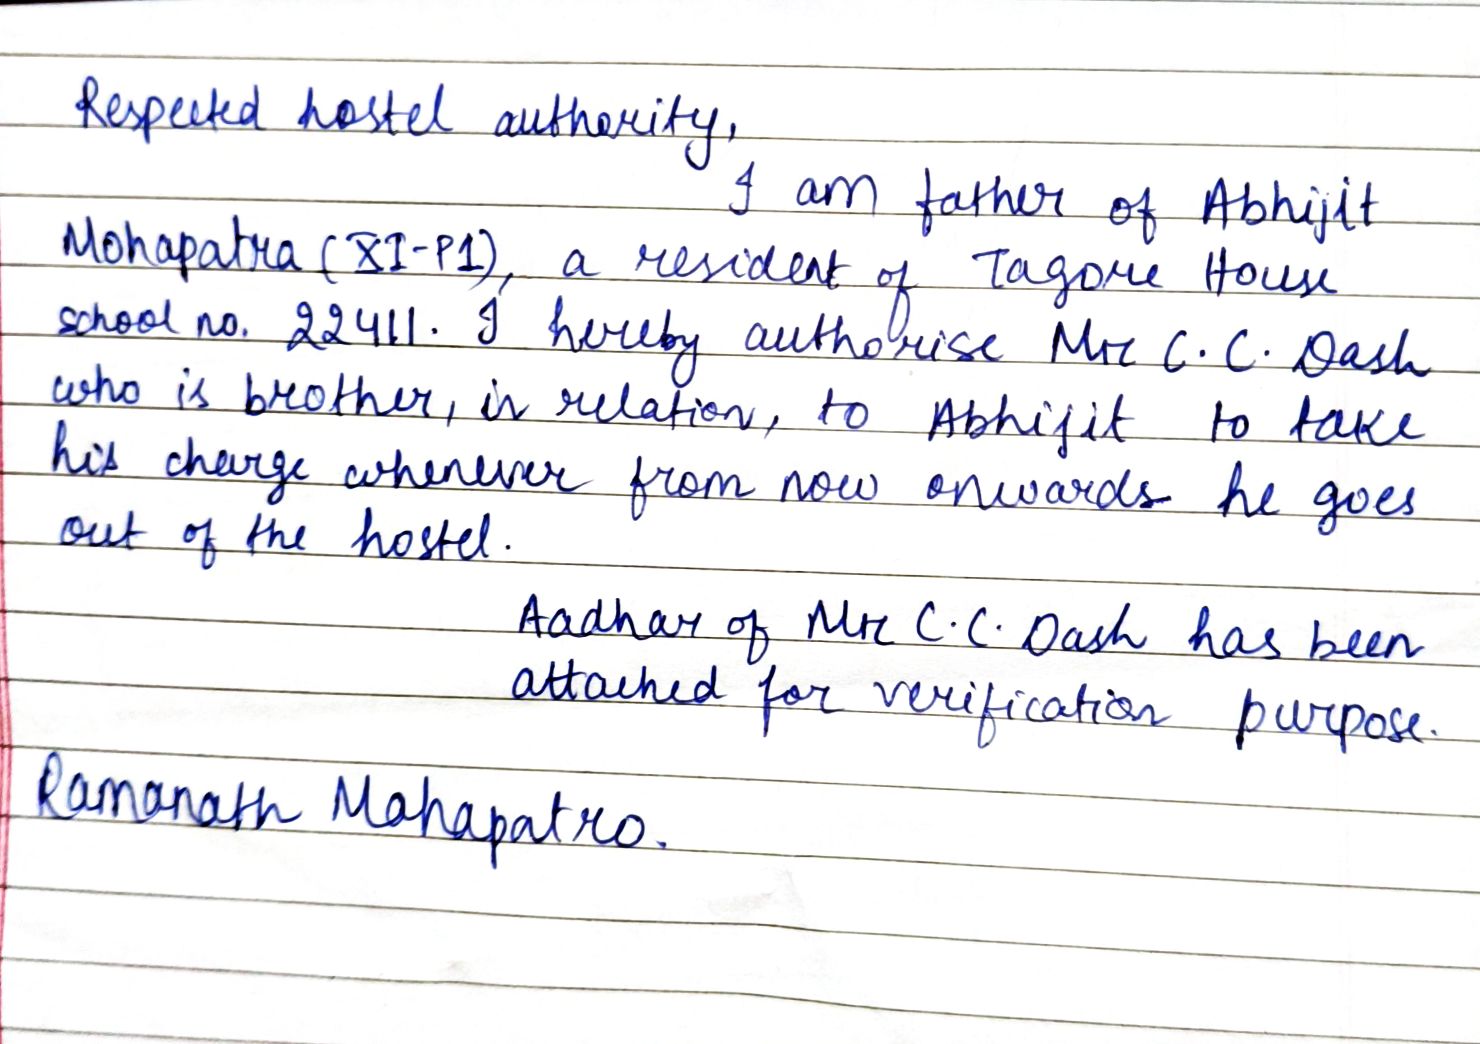 Respected hostel authority,
I am father of Abhijit
Mohapatra (XI-P1), a resident of Tagore House
school no. 22411. I hereby authorise Mr C.C. Dash
who is brother, in relation, to Abhijit to take
his charge whenever from now onwards he goes
out of the hostel.
Aadhar of Mr C.C. Dash has been
attached for verification purpose.
Ramanath Mohapatro.